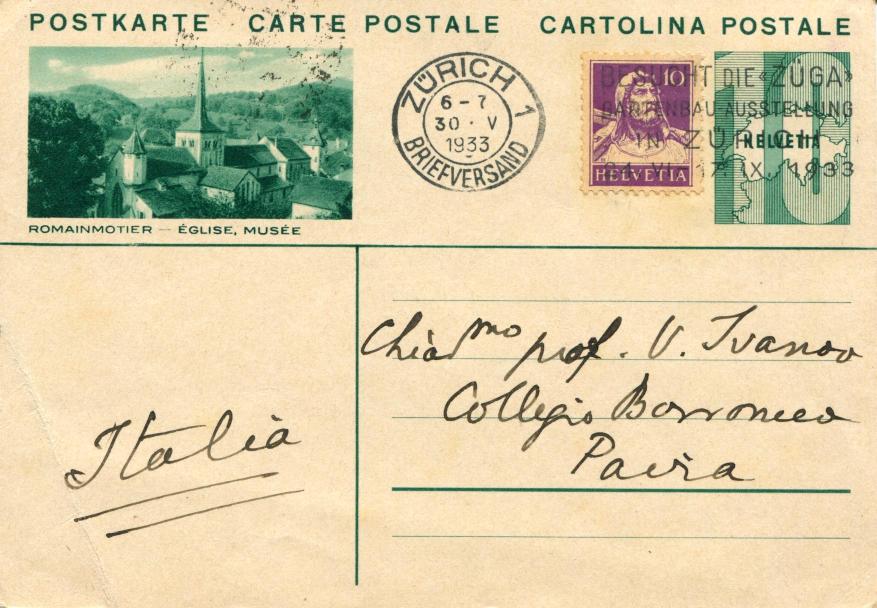 POSTKARTE CARTE POSTALE CARTOLINA POSTALE
ROMAINMOTIER — ÉGLISE, MUSÉE
ZÜRICH 1
6-7
30·V
1933
BRIEFVERSAND
10
HELVETIA
BESUCHT DIE «ZÜGA»
GARTENBAU-AUSSTELLUNG
IN ZÜRICH
24. VI. 17. IX. 1933
10
HELVETIA
Chiarmo prof. V. Ivanov
Collegio Borromeo
Pavia
Italia